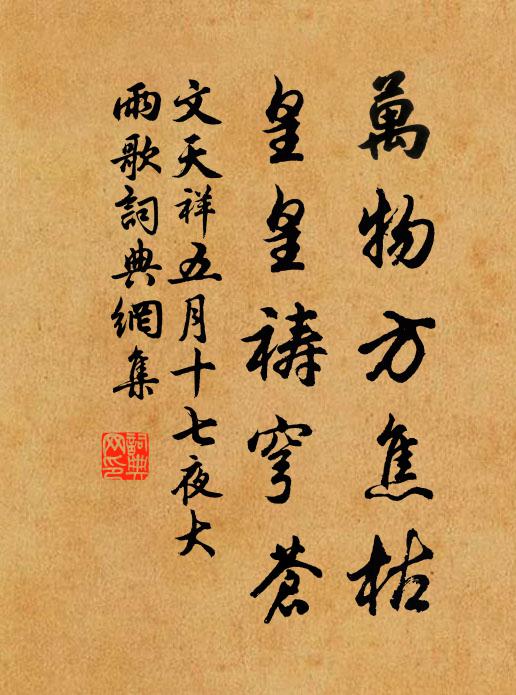 萬物方焦枯
皇皇禱穹蒼
文天祥五月十七夜大
雨歌詞典網集
詞典網印